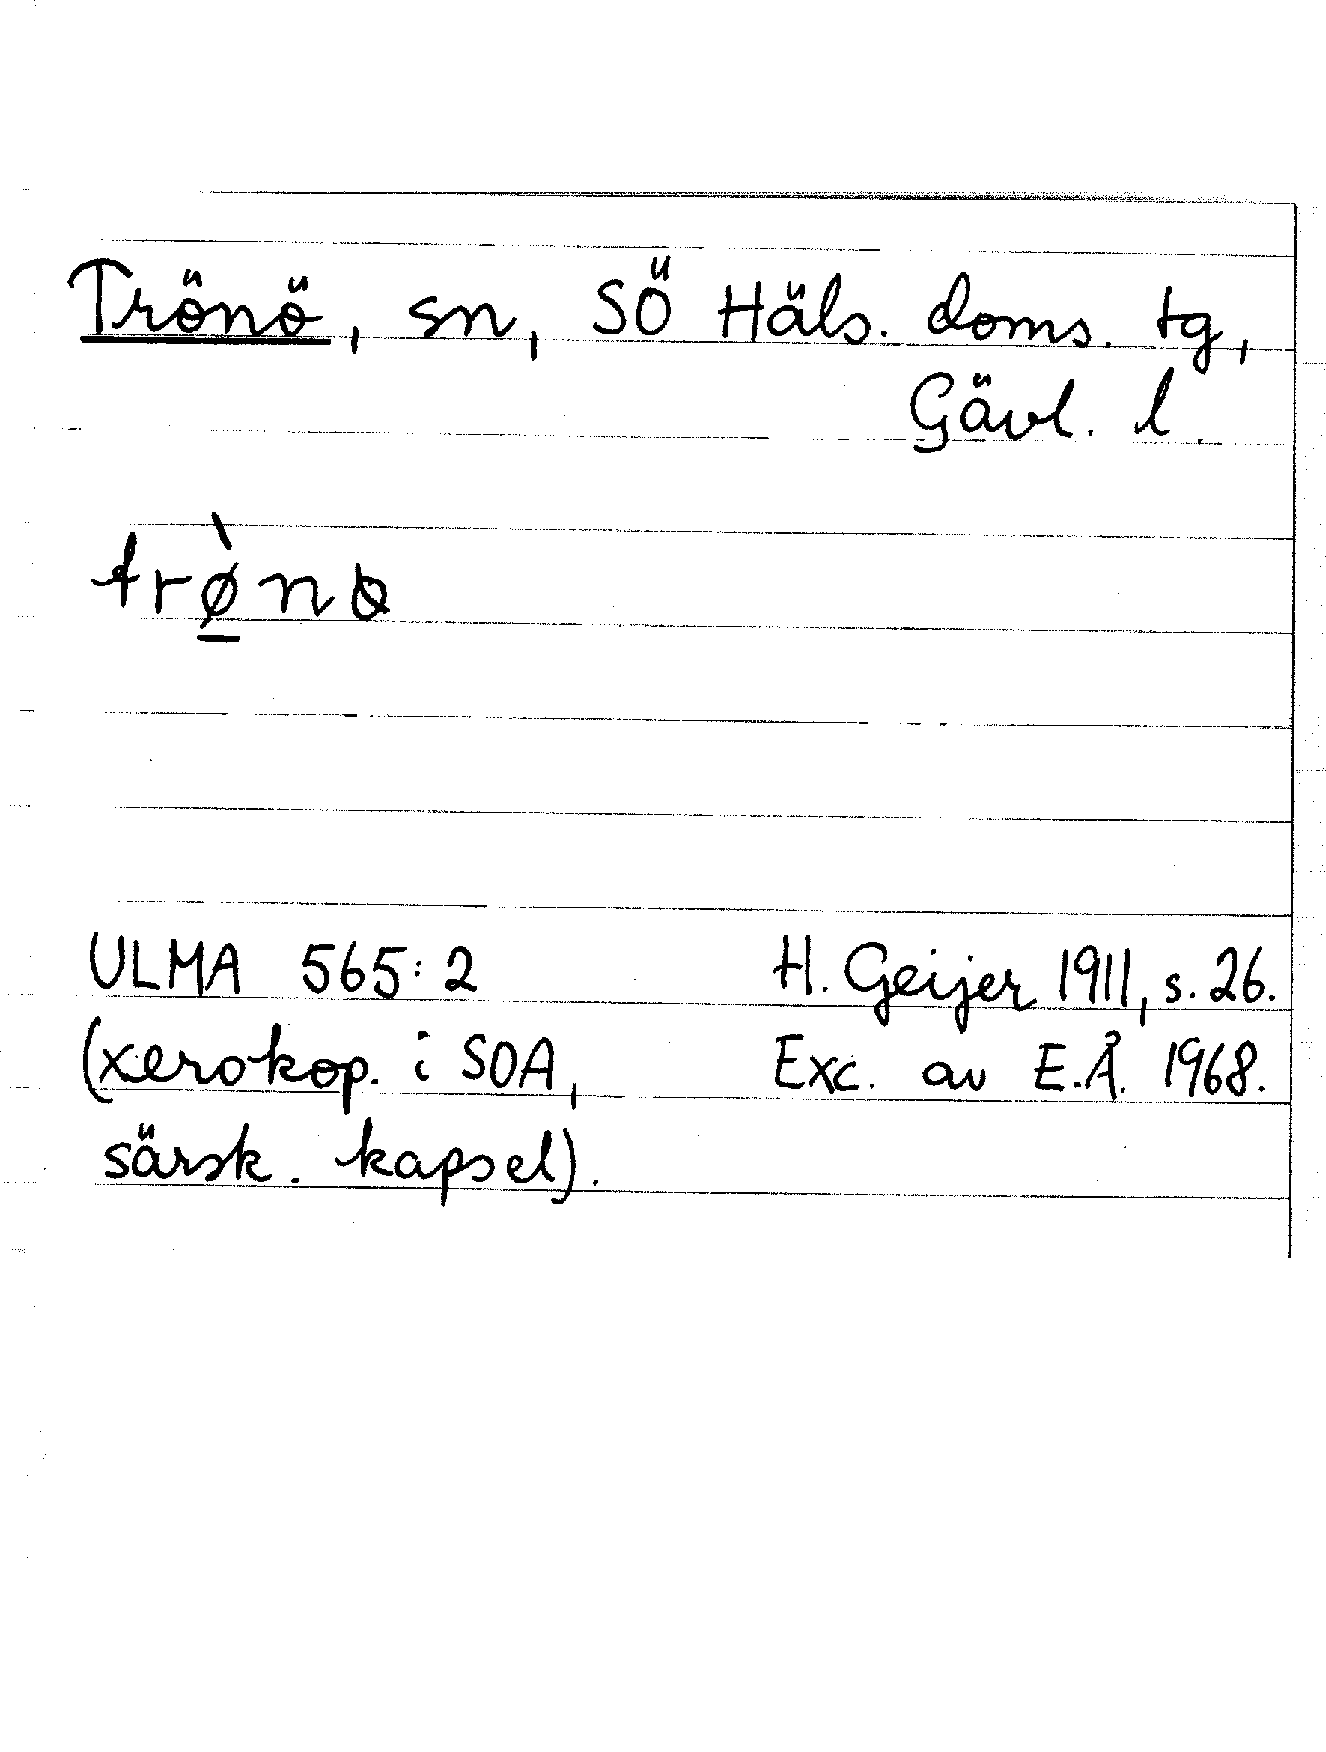 Trönö, sn, SÖ Häls. doms. tg,
Gävl. l.
ULMA 565:2 H. Geijer 1911, s. 26.
(xerokop. i SOA, Exc. av E.Å. 1968.
särsk. kapsel).